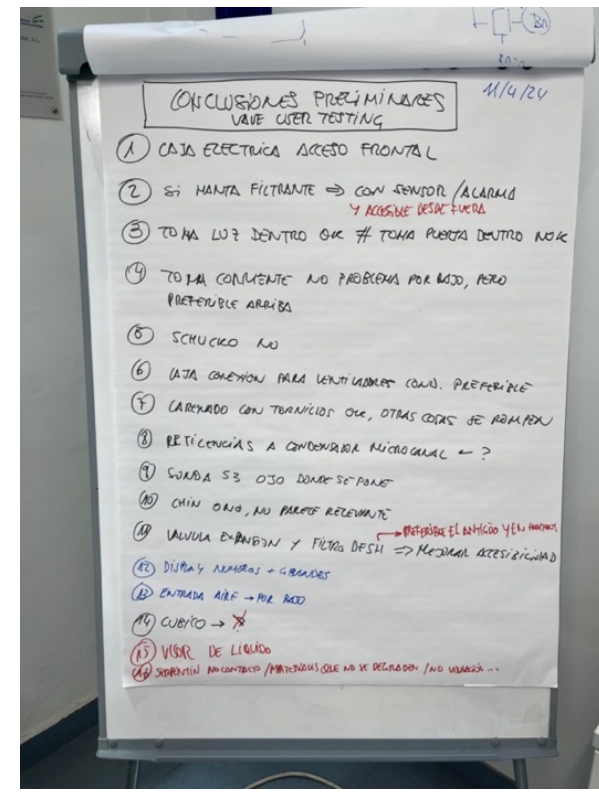 BA
11/4/24
CONCLUSIONES PRELIMINARES
VAVE USER TESTING
① CAJA ELECTRICA ACCESO FRONTAL
② SI MANTA FILTRANTE ⇒ CON SENSOR / ALARMA
Y ACCESIBLE DESDE FUERA
③ TOMA LUZ DENTRO OK # TOMA PUERTA DENTRO NOK
④ TOMA CORRIENTE NO PROBLEMA POR BAJO, PERO
PREFERIBLE ARRIBA
⑤ SCHUCKO NO
⑥ CAJA CONEXION PARA VENTILADORES COND. PREFERIBLE
⑦ CARENADO CON TORNILLOS OK, OTRAS COSAS SE ROMPEN
⑧ RETICENCIAS A CONDENSADOR MICROCANAL ← ?
⑨ SONDA S3 OJO DONDE SE PONE
⑩ CHIN O NO, NO PARECE RELEVANTE
→ PREFERIBLE EL ANTIGÜO Y EN
⑪ VALVULA EXPANSION Y FILTRO DESH ⇒ MEJORAR ACCESIBILIDAD
⑫ DISPLAY NUMEROS + GRANDES
⑬ ENTRADA AIRE → POR BAJO
⑭ CUBICO → X
⑮ VISOR DE LÍQUIDO
⑯ SERPENTIN NO CONTACTO / MATERIALES QUE NO SE DEGRADEN / NO VIBRACIÓN ...